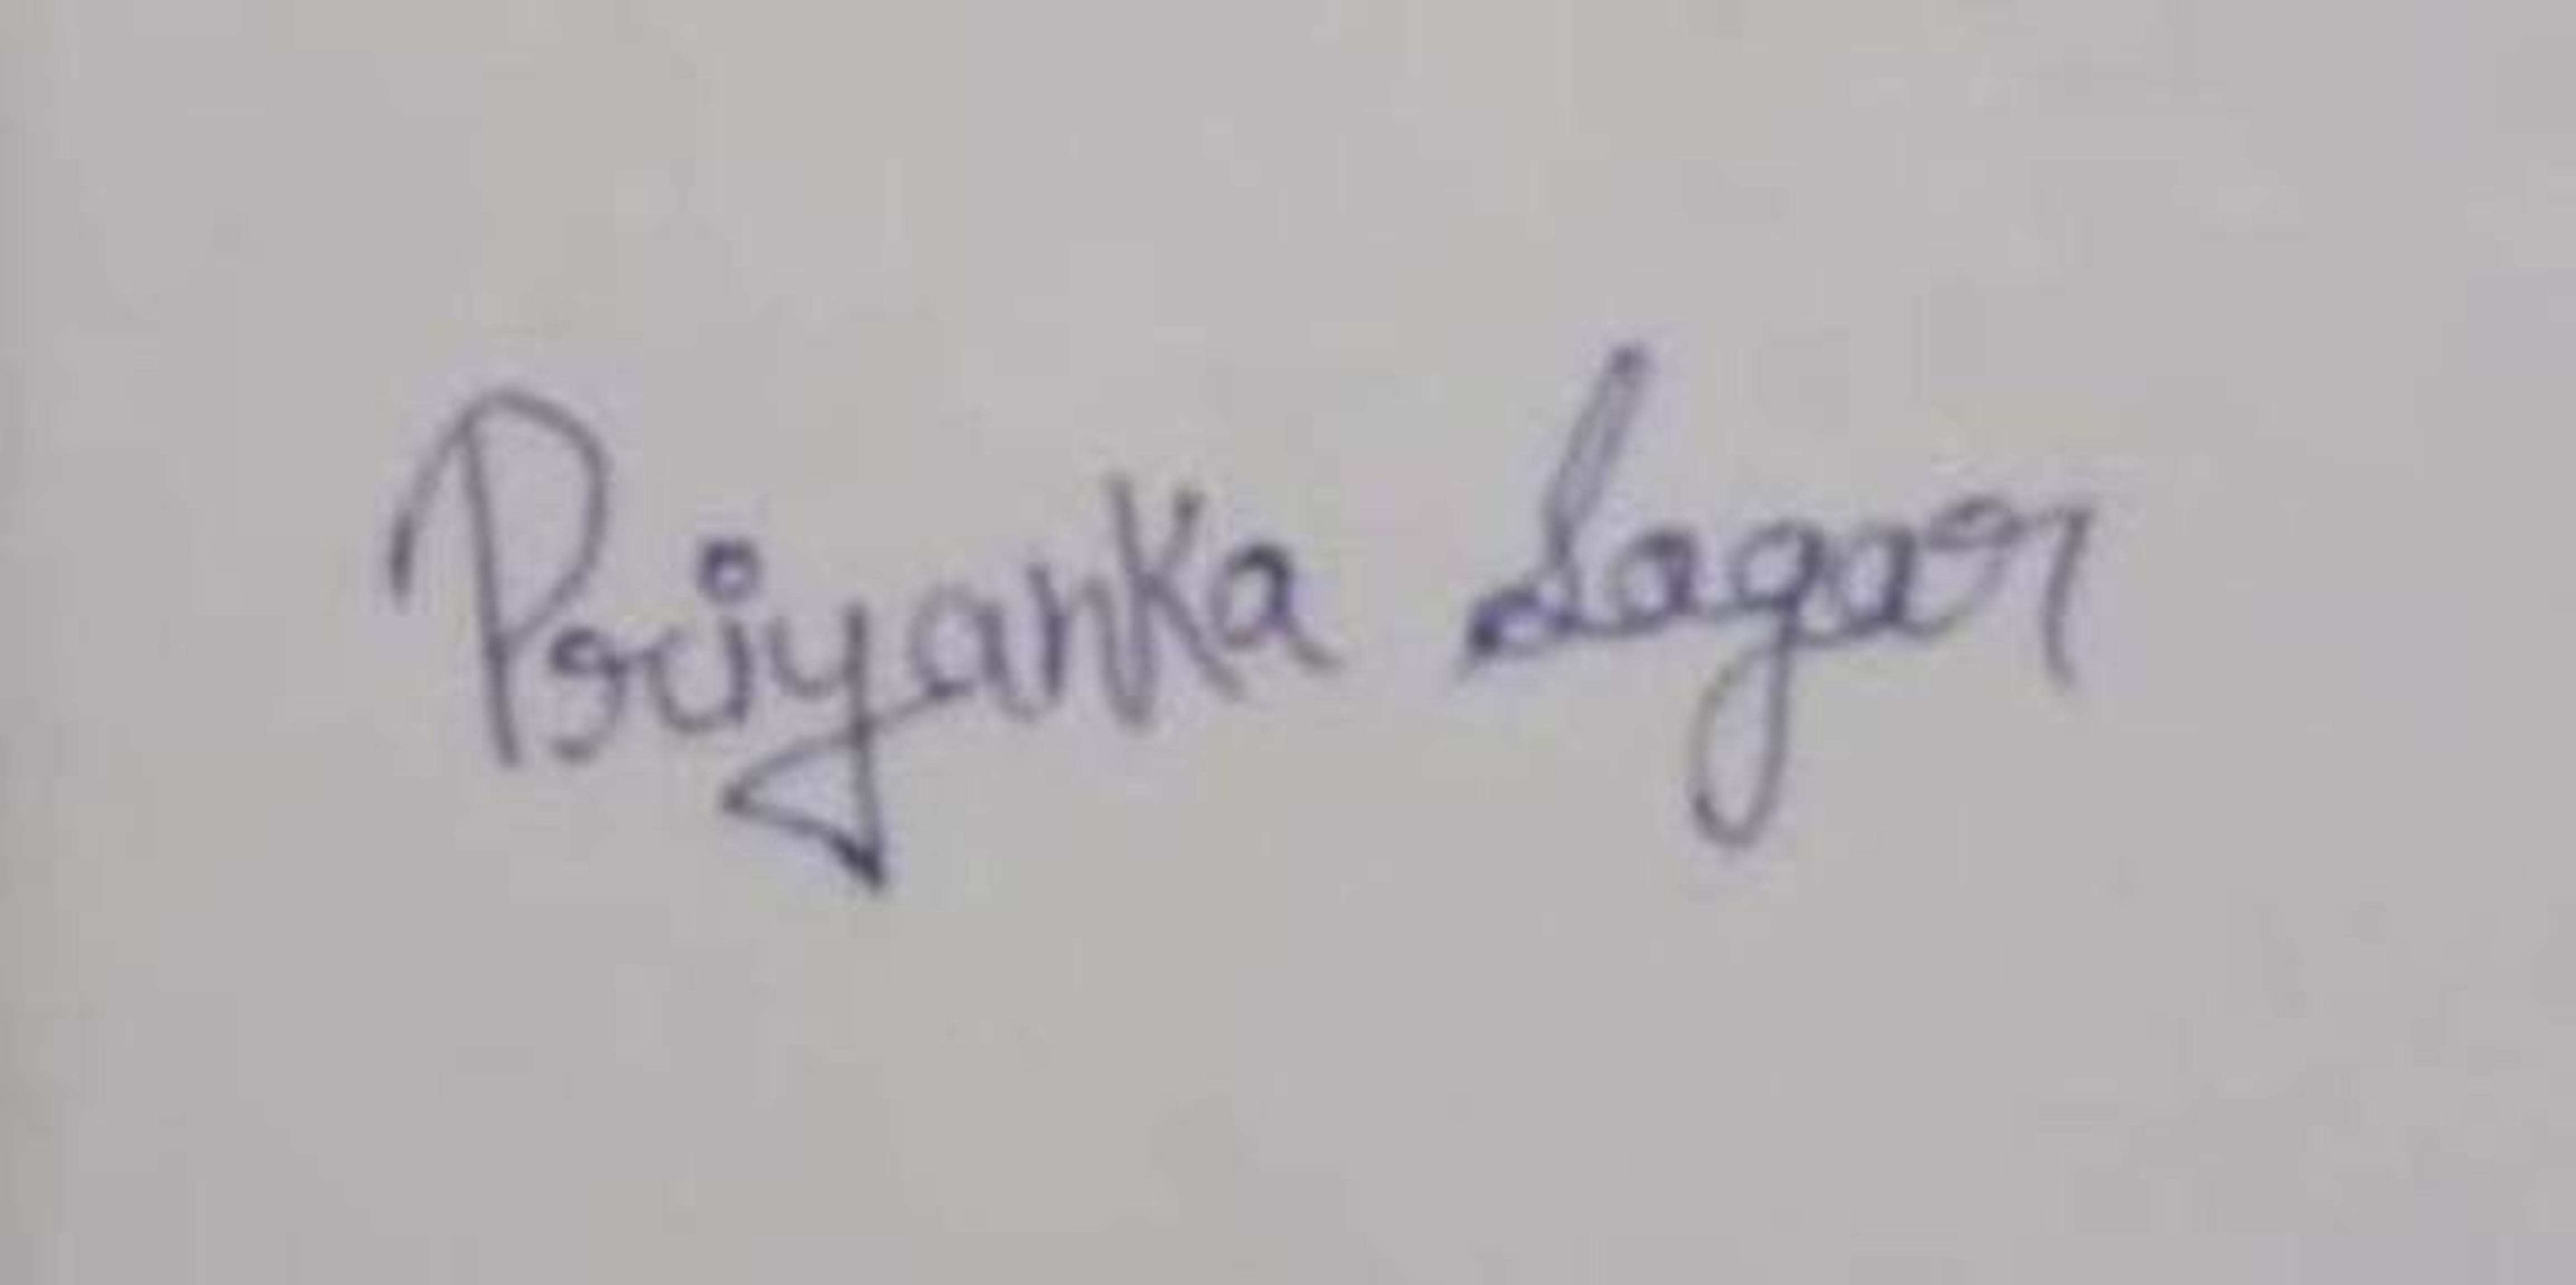 Priyanka Sagar